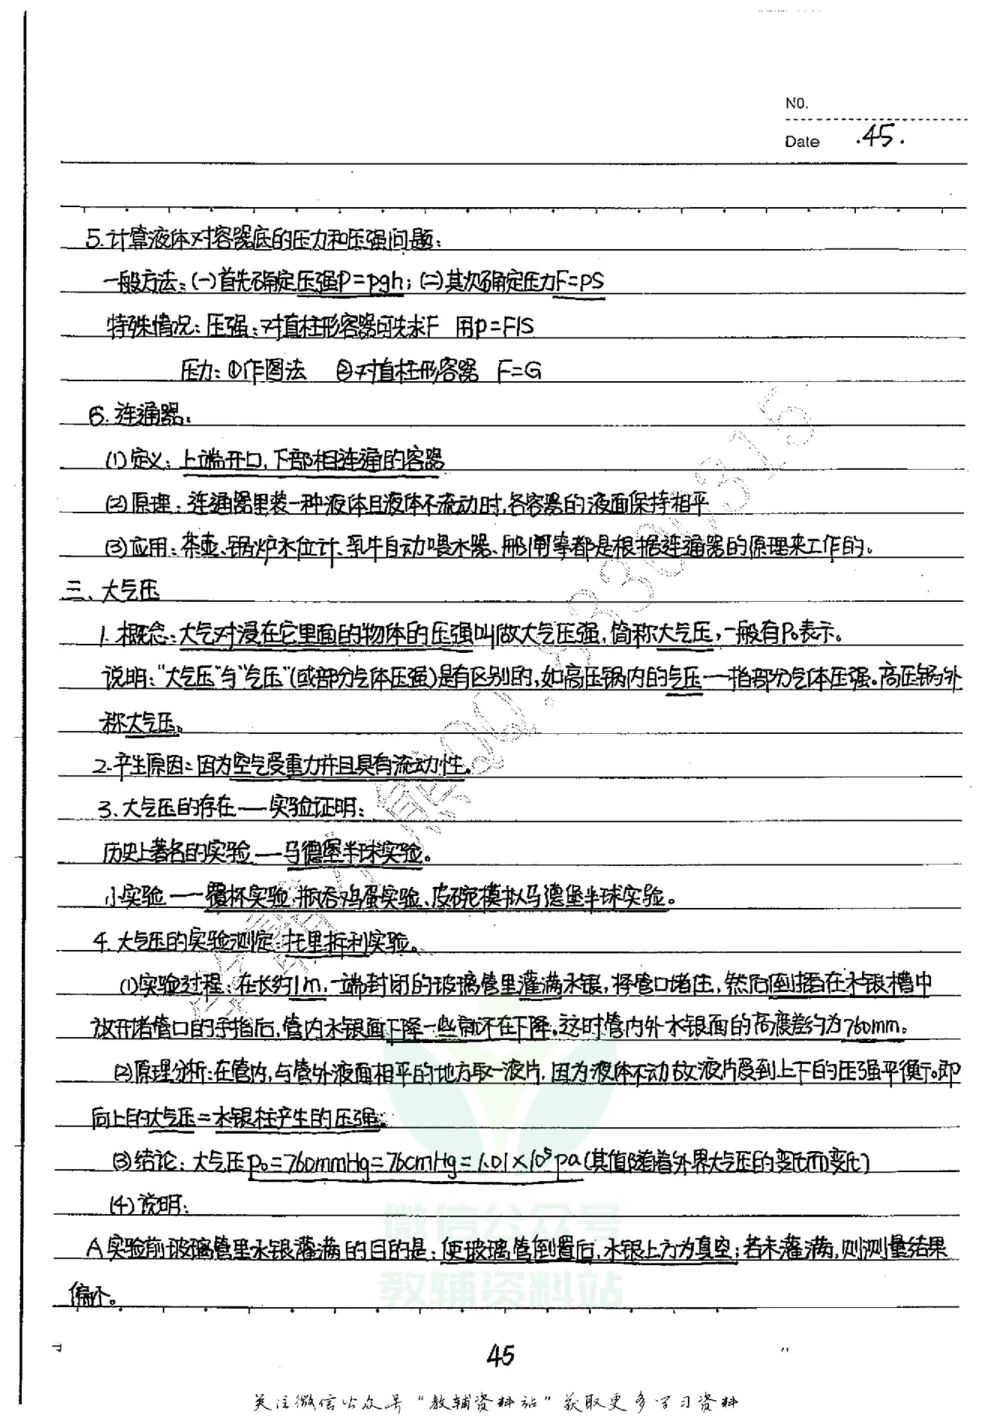 NO.
Date .45.
5.计算液体对容器底的压力和压强问题:
一般方法:(一)首先确定压强P=ρgh;(二)其次确定压力F=PS
特殊情况:压强:对直柱形容器可先求F 用p=F/S
压力:①作图法 ②对直柱形容器 F=G
6.连通器:
(1)定义:上端开口,下部相连通的容器
(2)原理:连通器里装一种液体且液体不流动时,各容器的液面保持相平
(3)应用:茶壶、锅炉水位计、乳牛自动喂水器、船闸等都是根据连通器的原理来工作的。
三、大气压
1.概念:大气对浸在它里面的物体的压强叫做大气压强,简称大气压,一般有P₀表示。
说明:"大气压"与"气压"(或部分气体压强)是有区别的,如高压锅内的气压——指部分气体压强。高压锅外
称大气压。
2.产生原因:因为空气受重力并且具有流动性。
3.大气压的存在——实验证明:
历史上著名的实验——马德堡半球实验。
小实验——覆杯实验、瓶吞鸡蛋实验、皮碗模拟马德堡半球实验。
4.大气压的实验测定:托里拆利实验。
(1)实验过程:在长约1m,一端封闭的玻璃管里灌满水银,将管口堵住,然后倒插在水银槽中
放开堵管口的手指后,管内水银面下降一些就不在下降。这时管内外水银面的高度差约为760mm。
(2)原理分析:在管内,与管外液面相平的地方取一液片,因为液体不动故液片受到上下的压强平衡。即
向上的大气压=水银柱产生的压强。
(3)结论:大气压P₀=760mmHg=76cmHg=1.01×10⁵pa(其值随着外界大气压的变化而变化)
(4)说明:
A实验前玻璃管里水银灌满的目的是:使玻璃管倒置后,水银上方为真空;若未灌满,则测量结果
偏小。
微信公众号
教辅资料站
45
关注微信公众号"教辅资料站"获取更多学习资料